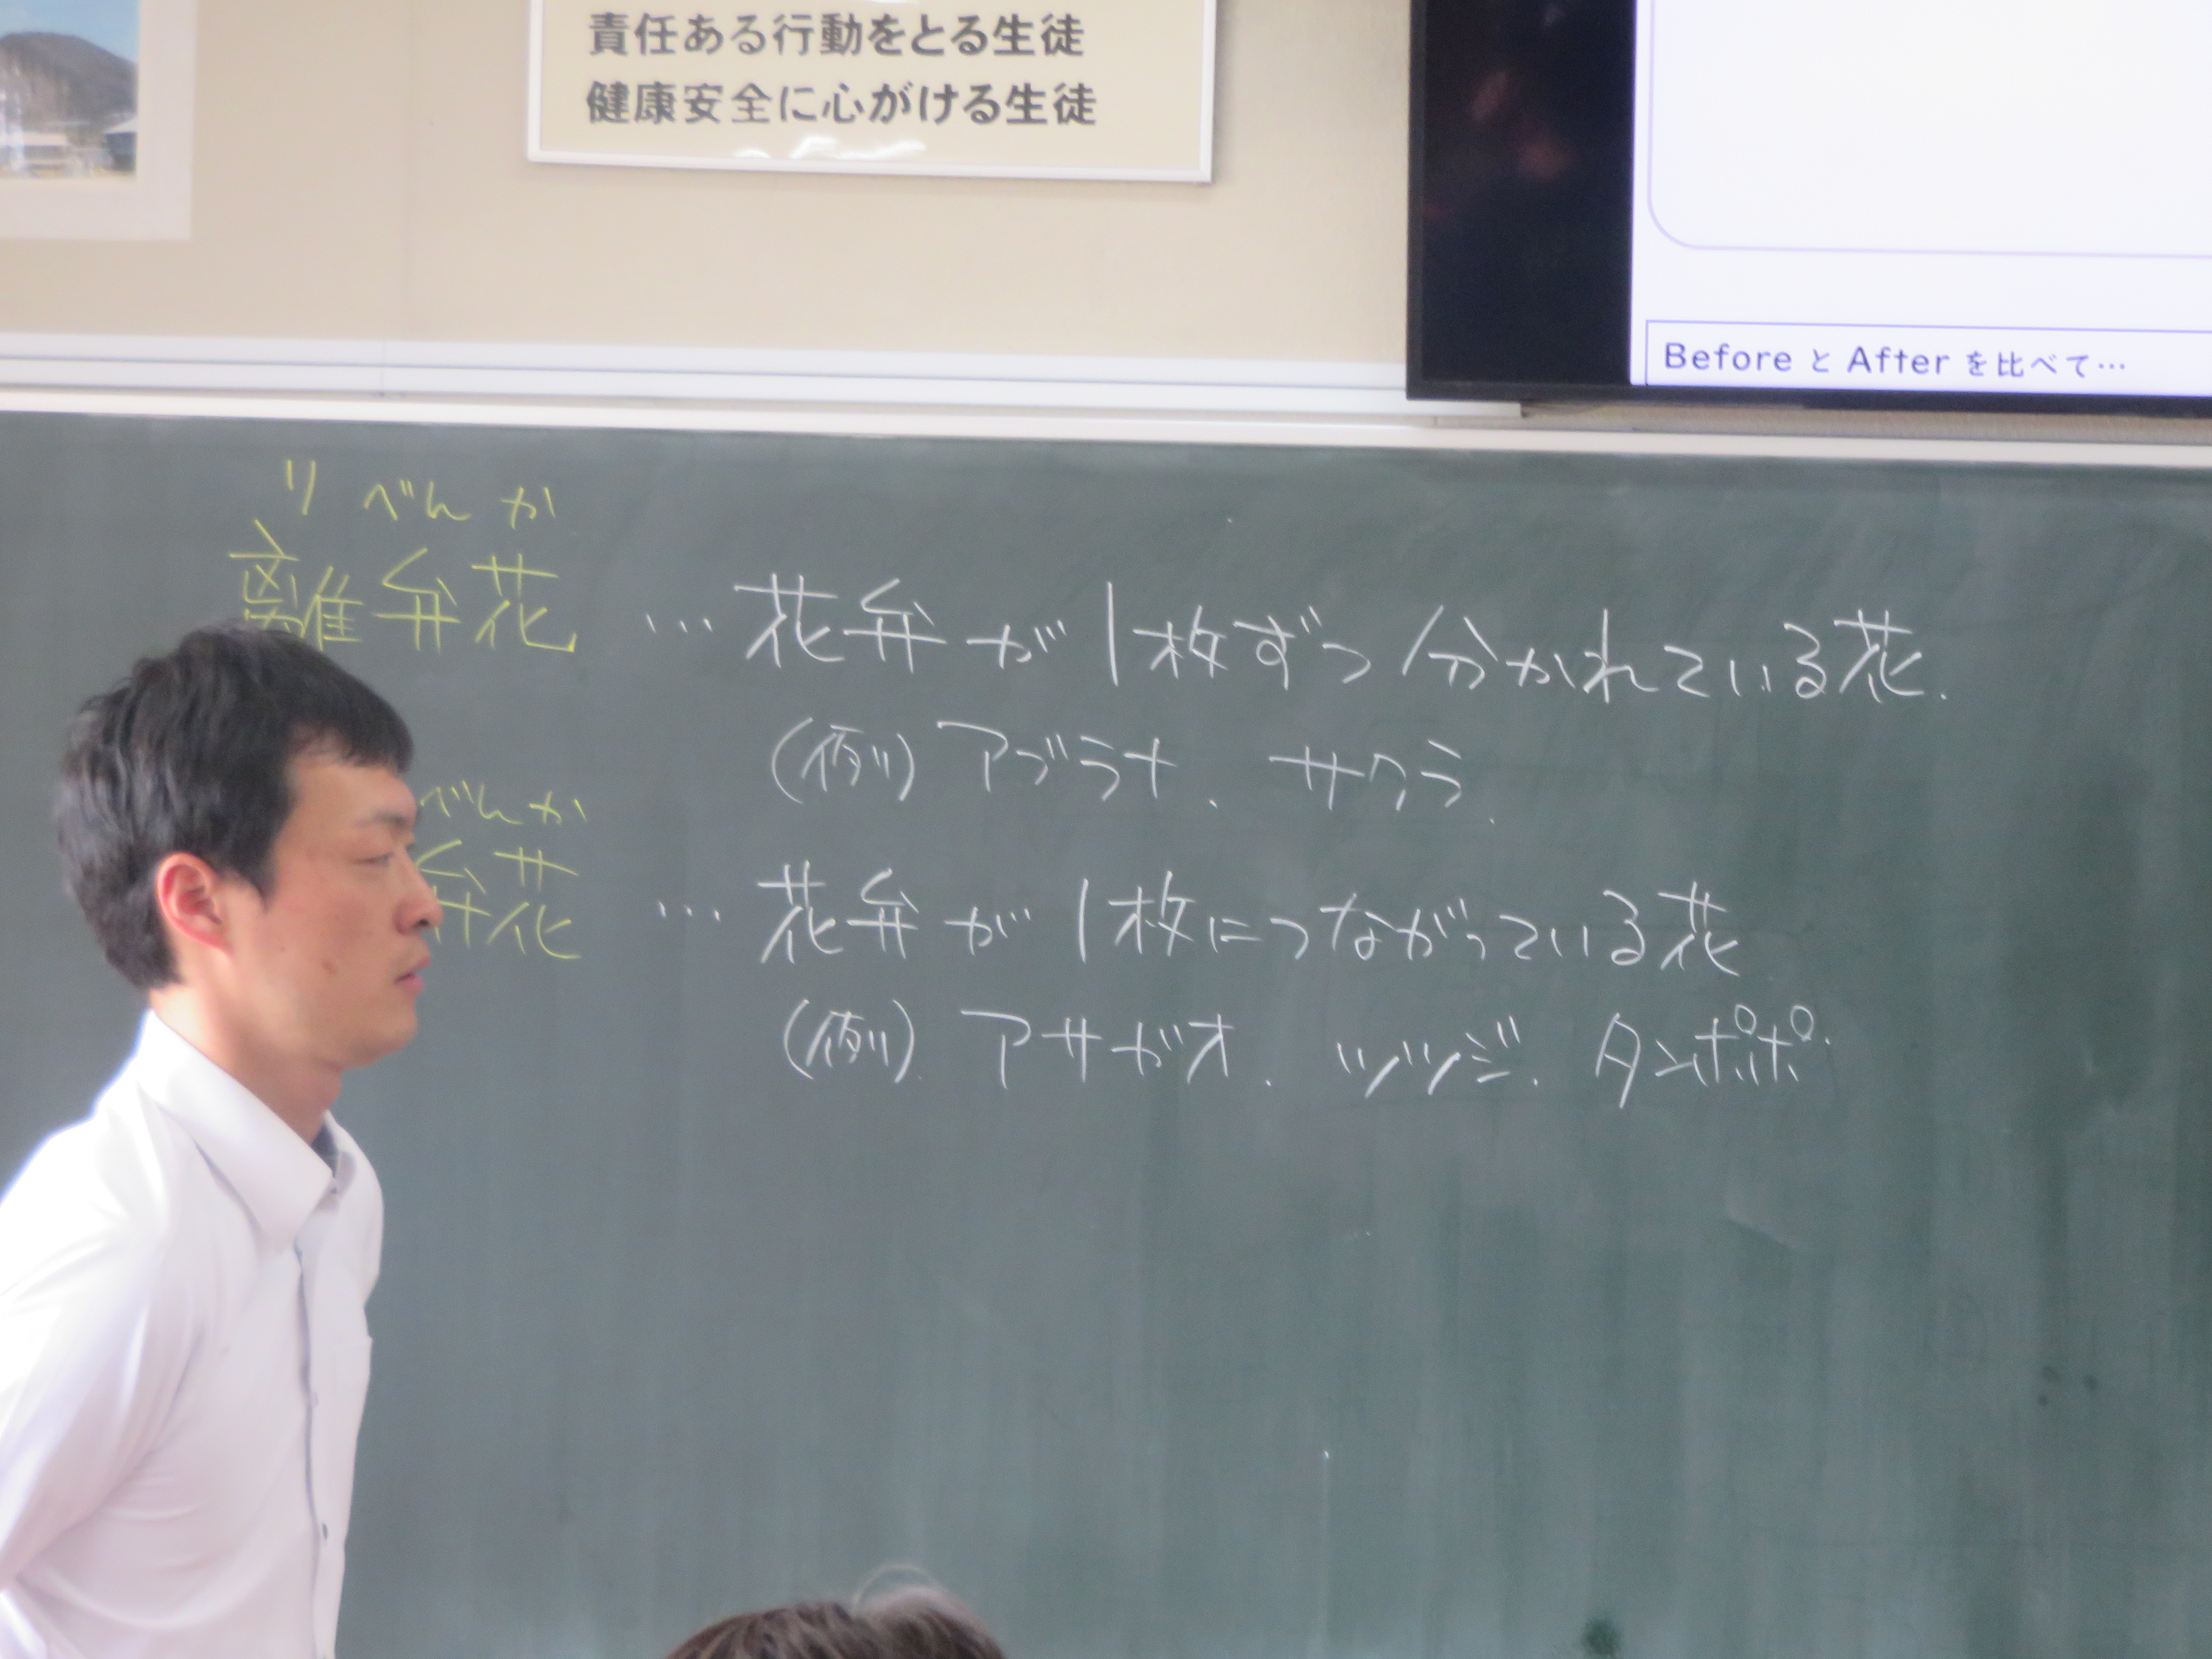 責任ある行動をとる生徒
健康安全に心がける生徒
Before と After を比べて…
りべんか
離弁花 …花弁が1枚ずつ分かれている花.
(例) アブラナ、サクラ、
べんか
弁花 …花弁が1枚につながっている花
(例) アサガオ、ツツジ、タンポポ.